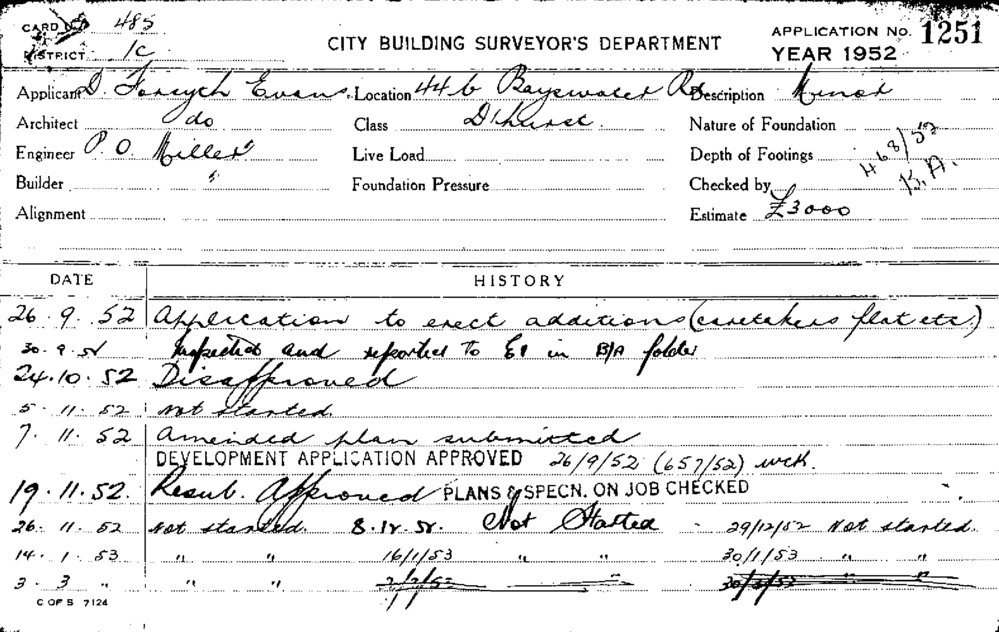 CARD No 485
DISTRICT 1C
CITY BUILDING SURVEYOR'S DEPARTMENT
APPLICATION No. 1251
YEAR 1952
Applicant D. Forsyth Evans. Location 44b Bayswater Rd Description Minor
Architect do Class D'hurst. Nature of Foundation
Engineer P. O. Miller Live Load Depth of Footings 468/52
Builder " Foundation Pressure Checked by K.A.
Alignment Estimate £3000
DATE HISTORY
26. 9. 52 Application to erect additions (caretakers flat etc.)
30. 9. 52 Inspected and reported to E1 in B/A folder
24. 10. 52 Disapproved
5. 11. 52 Not started.
7. 11. 52 Amended plan submitted
DEVELOPMENT APPLICATION APPROVED 26/9/52 (657/52) wck.
19. 11. 52. Resub. Approved PLANS & SPECN. ON JOB CHECKED
26. 11. 52 Not started. 8.12.52. Not Started 29/12/52 Not started.
14. 1. 53 " " 16/1/53 " " 30/1/53 " "
3. 3 " " " "
C OF S 7124